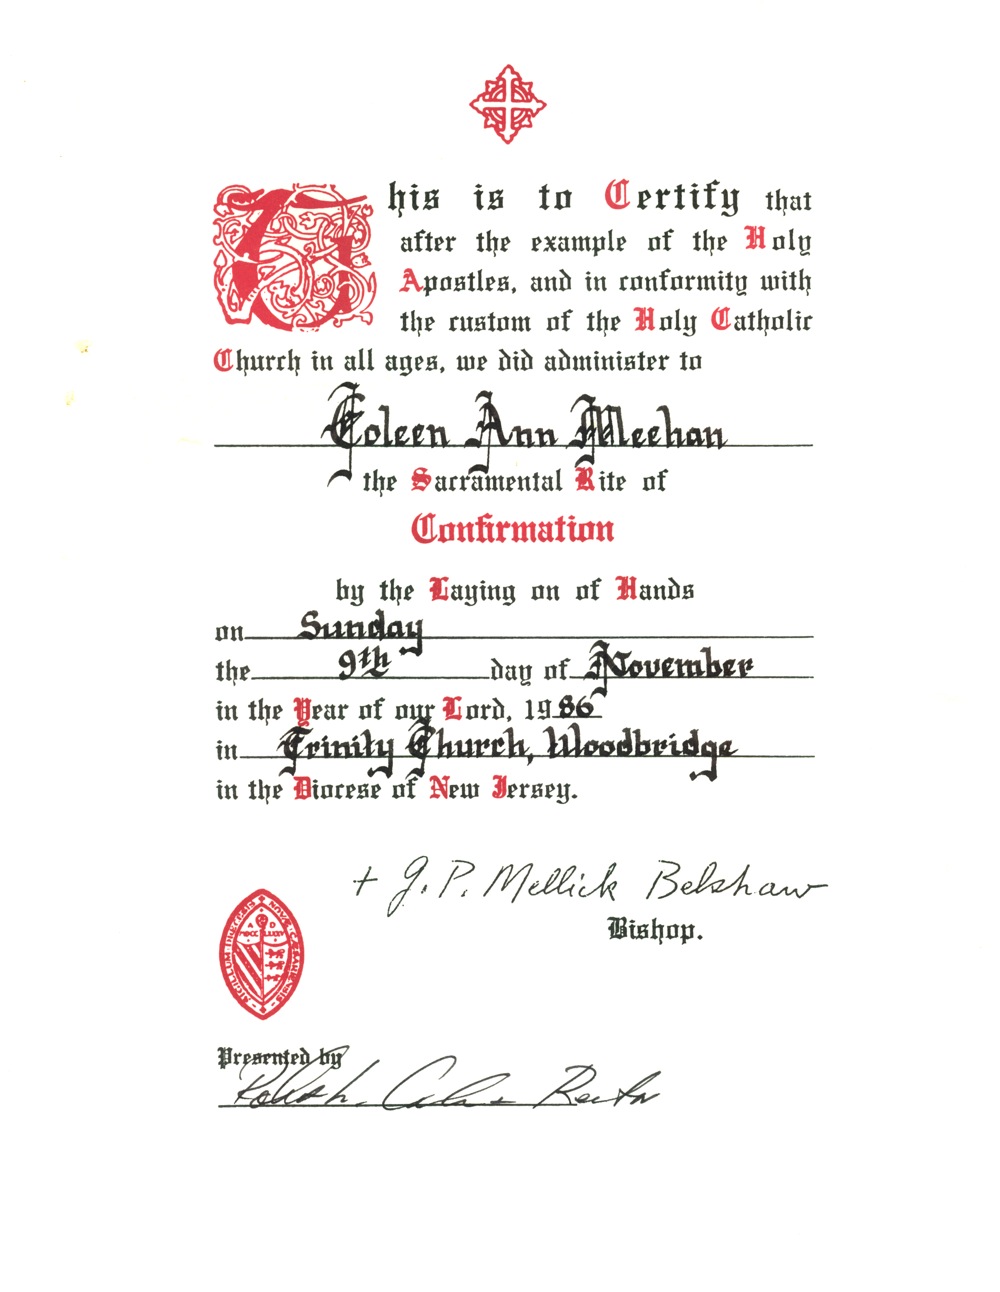 This is to Certify that
after the example of the Holy
Apostles, and in conformity with
the custom of the Holy Catholic
Church in all ages, we did administer to
Coleen Ann Meehan
the Sacramental Rite of
Confirmation
by the Laying on of Hands
on Sunday
the 9th day of November
in the Year of our Lord, 1986
in Trinity Church, Woodbridge
in the Diocese of New Jersey.
+ G. P. Mellick Belshaw
Bishop.
SIGILLUM DIŒCESIS NOVÆ CÆSARIENSIS
A D
Presented by
Rector